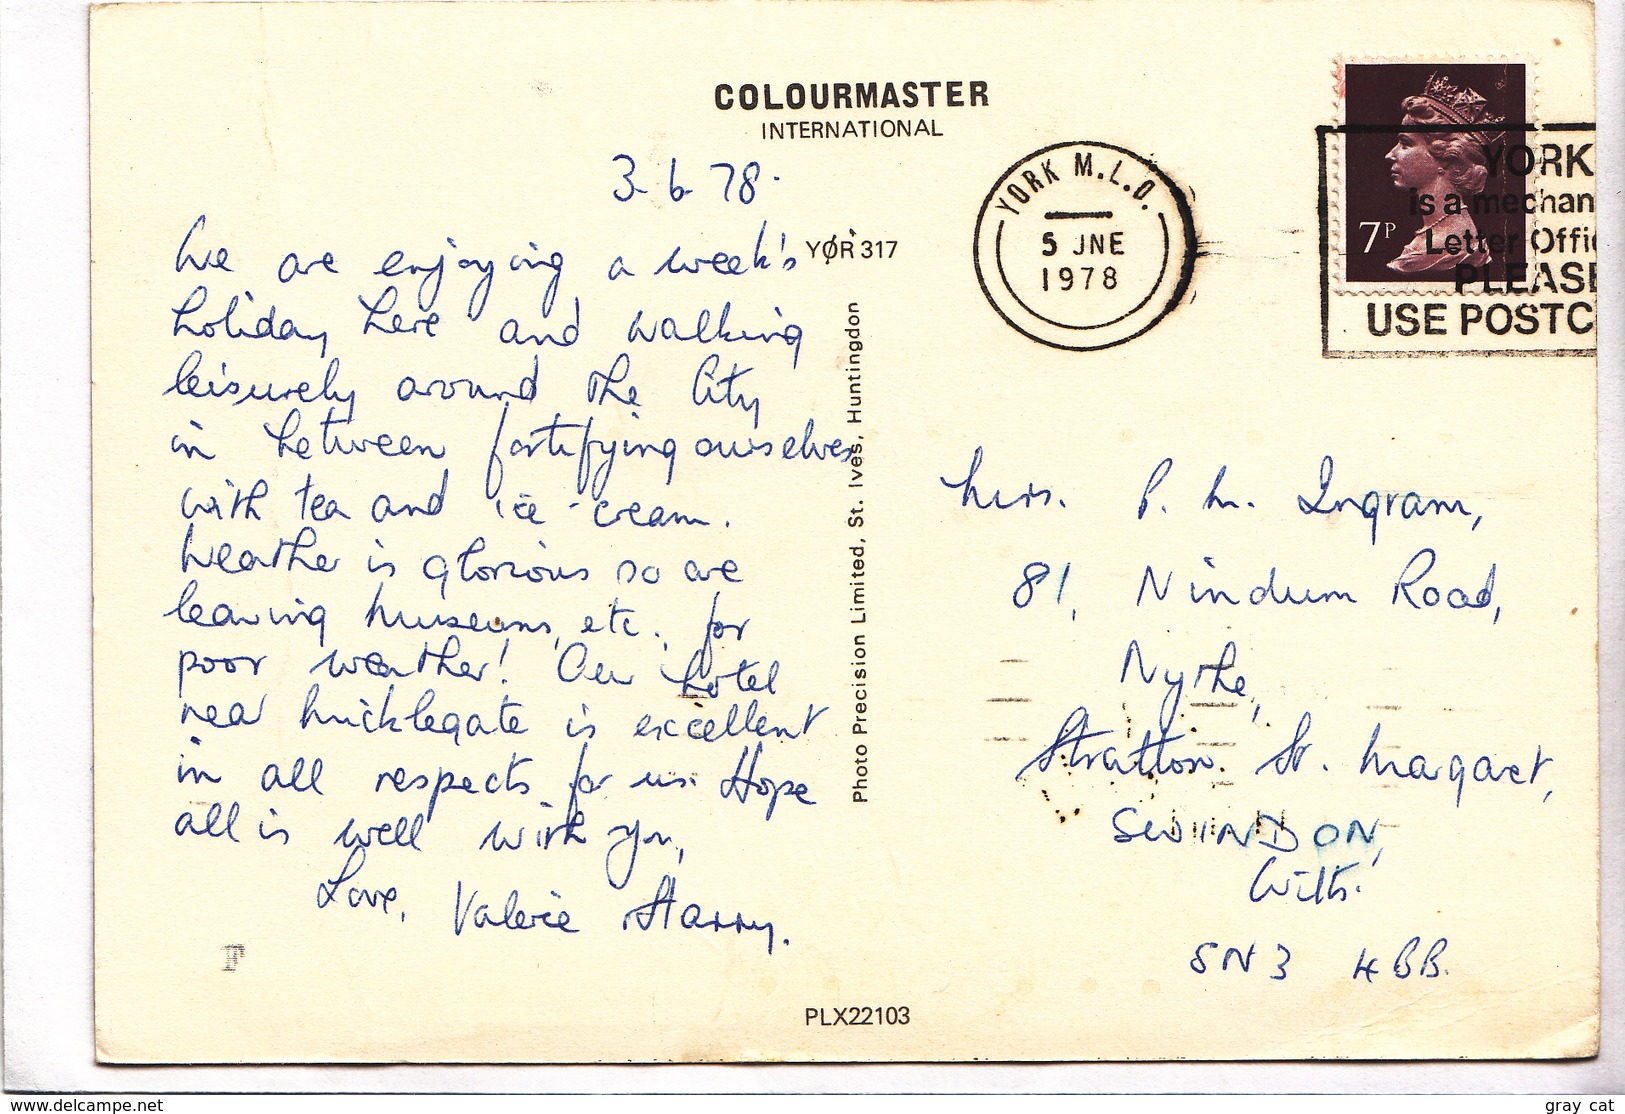 COLOURMASTER
INTERNATIONAL
3. 6. 78.
We are enjoying a week's
holiday here and walking
leisurely around the City
in between fortifying ourselves
with tea and ice-cream.
Weather is glorious so are
leaving Museums, etc. for
poor weather! Our hotel
near Micklegate is excellent
in all respects for us. Hope
all is well with you,
Love, Valerie & Harry.
F
YØR 317
Photo Precision Limited, St. Ives, Huntingdon
PLX22103
YORK M.L.O.
5 JNE
1978
7P
YORK
is a mechan
Letter Offi
PLEASE
USE POSTC
Mrs. P. M. Ingram,
81, Nindum Road,
Nythe,
Stratton St. Margaret,
SWINDON,
Wilts.
SN3 4BB.
www.delcampe.net
gray cat